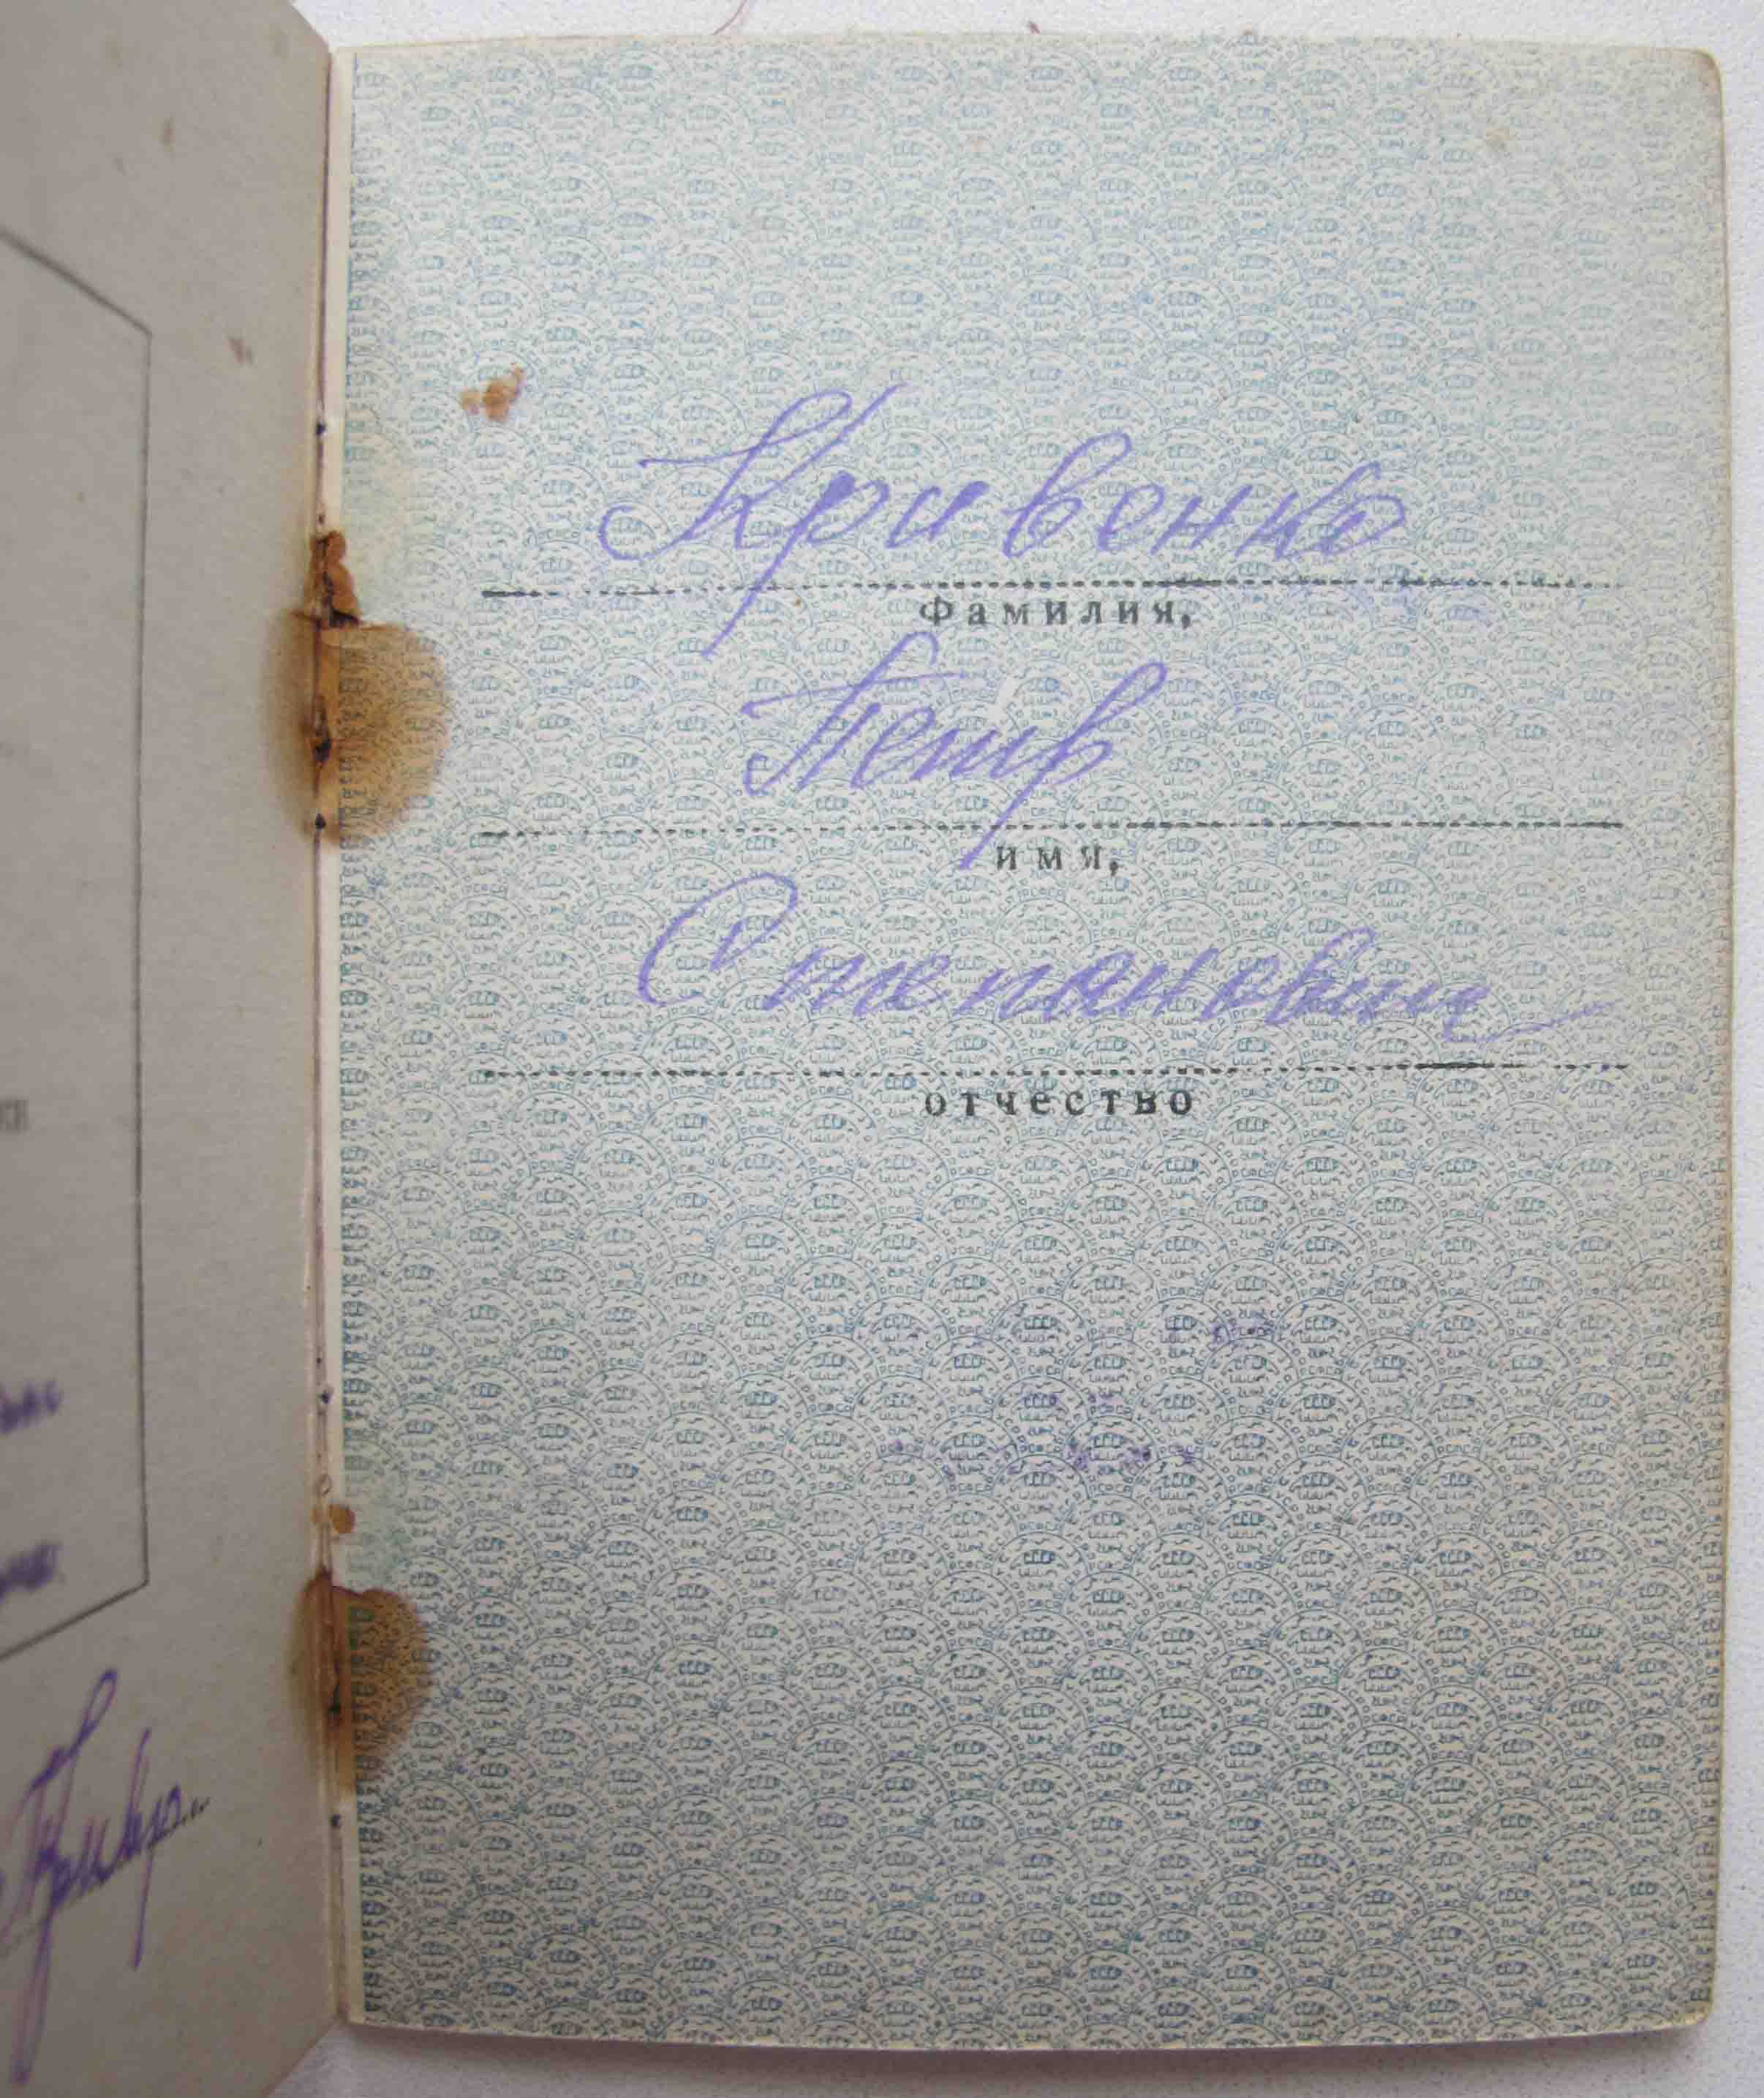 Кривенко
Фамилия,
Петр
имя,
Степанович
отчество